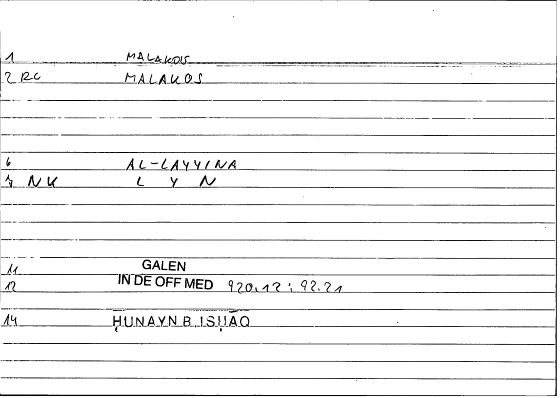 1 MALAKOS
2 RC MALAKOS
6 AL-LAYYINA
7 NK L Y N
11 GALEN
12 IN DE OFF MED 920.12 : 92.21
14 ḤUNAYN B. ISḤĀQ